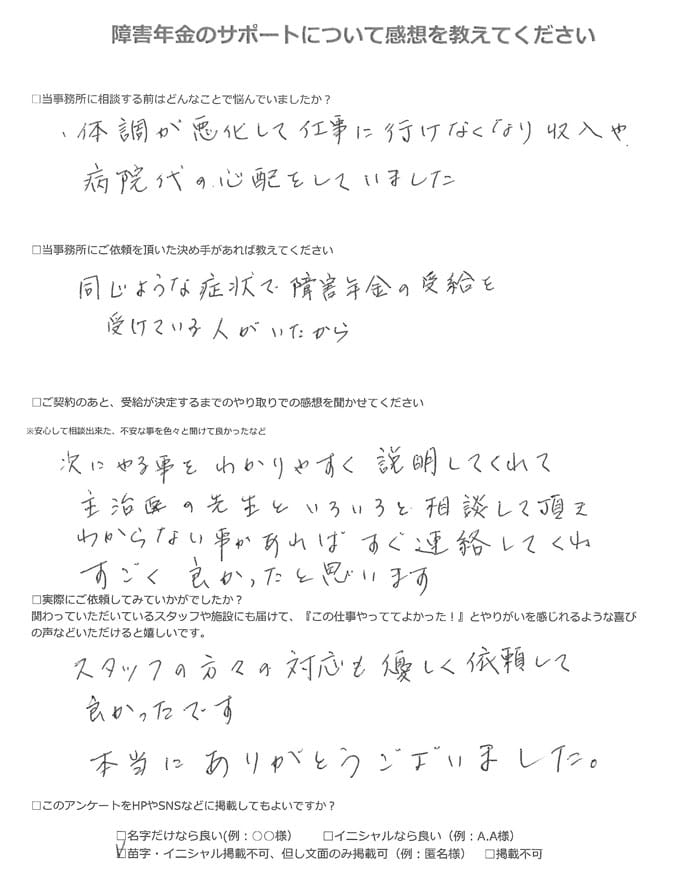 障害年金のサポートについて感想を教えてください
□当事務所に相談する前はどんなことで悩んでいましたか？
、体調が悪化して仕事に行けなくなり収入や
病院代の心配をしていました
□当事務所にご依頼を頂いた決め手があれば教えてください
同じような症状で障害年金の受給を
受けている人がいたから
□ご契約のあと、受給が決定するまでのやり取りでの感想を聞かせてください
※安心して相談出来た、不安な事を色々と聞けて良かったなど
次にやる事をわかりやすく説明してくれて
主治医の先生といろいろと相談して頂き
わからない事があればすぐ連絡してくれ
すごく良かったと思います
□実際にご依頼してみていかがでしたか？
関わっていただいているスタッフや施設にも届けて、『この仕事やっててよかった！』とやりがいを感じれるような喜び
の声などいただけると嬉しいです。
スタッフの方々の対応も優しく依頼して
良かったです
本当にありがとうございました。
□このアンケートをHPやSNSなどに掲載してもよいですか？
□名字だけなら良い(例：○○様)　□イニシャルなら良い（例：A.A様）
☑苗字・イニシャル掲載不可、但し文面のみ掲載可（例：匿名様）　□掲載不可